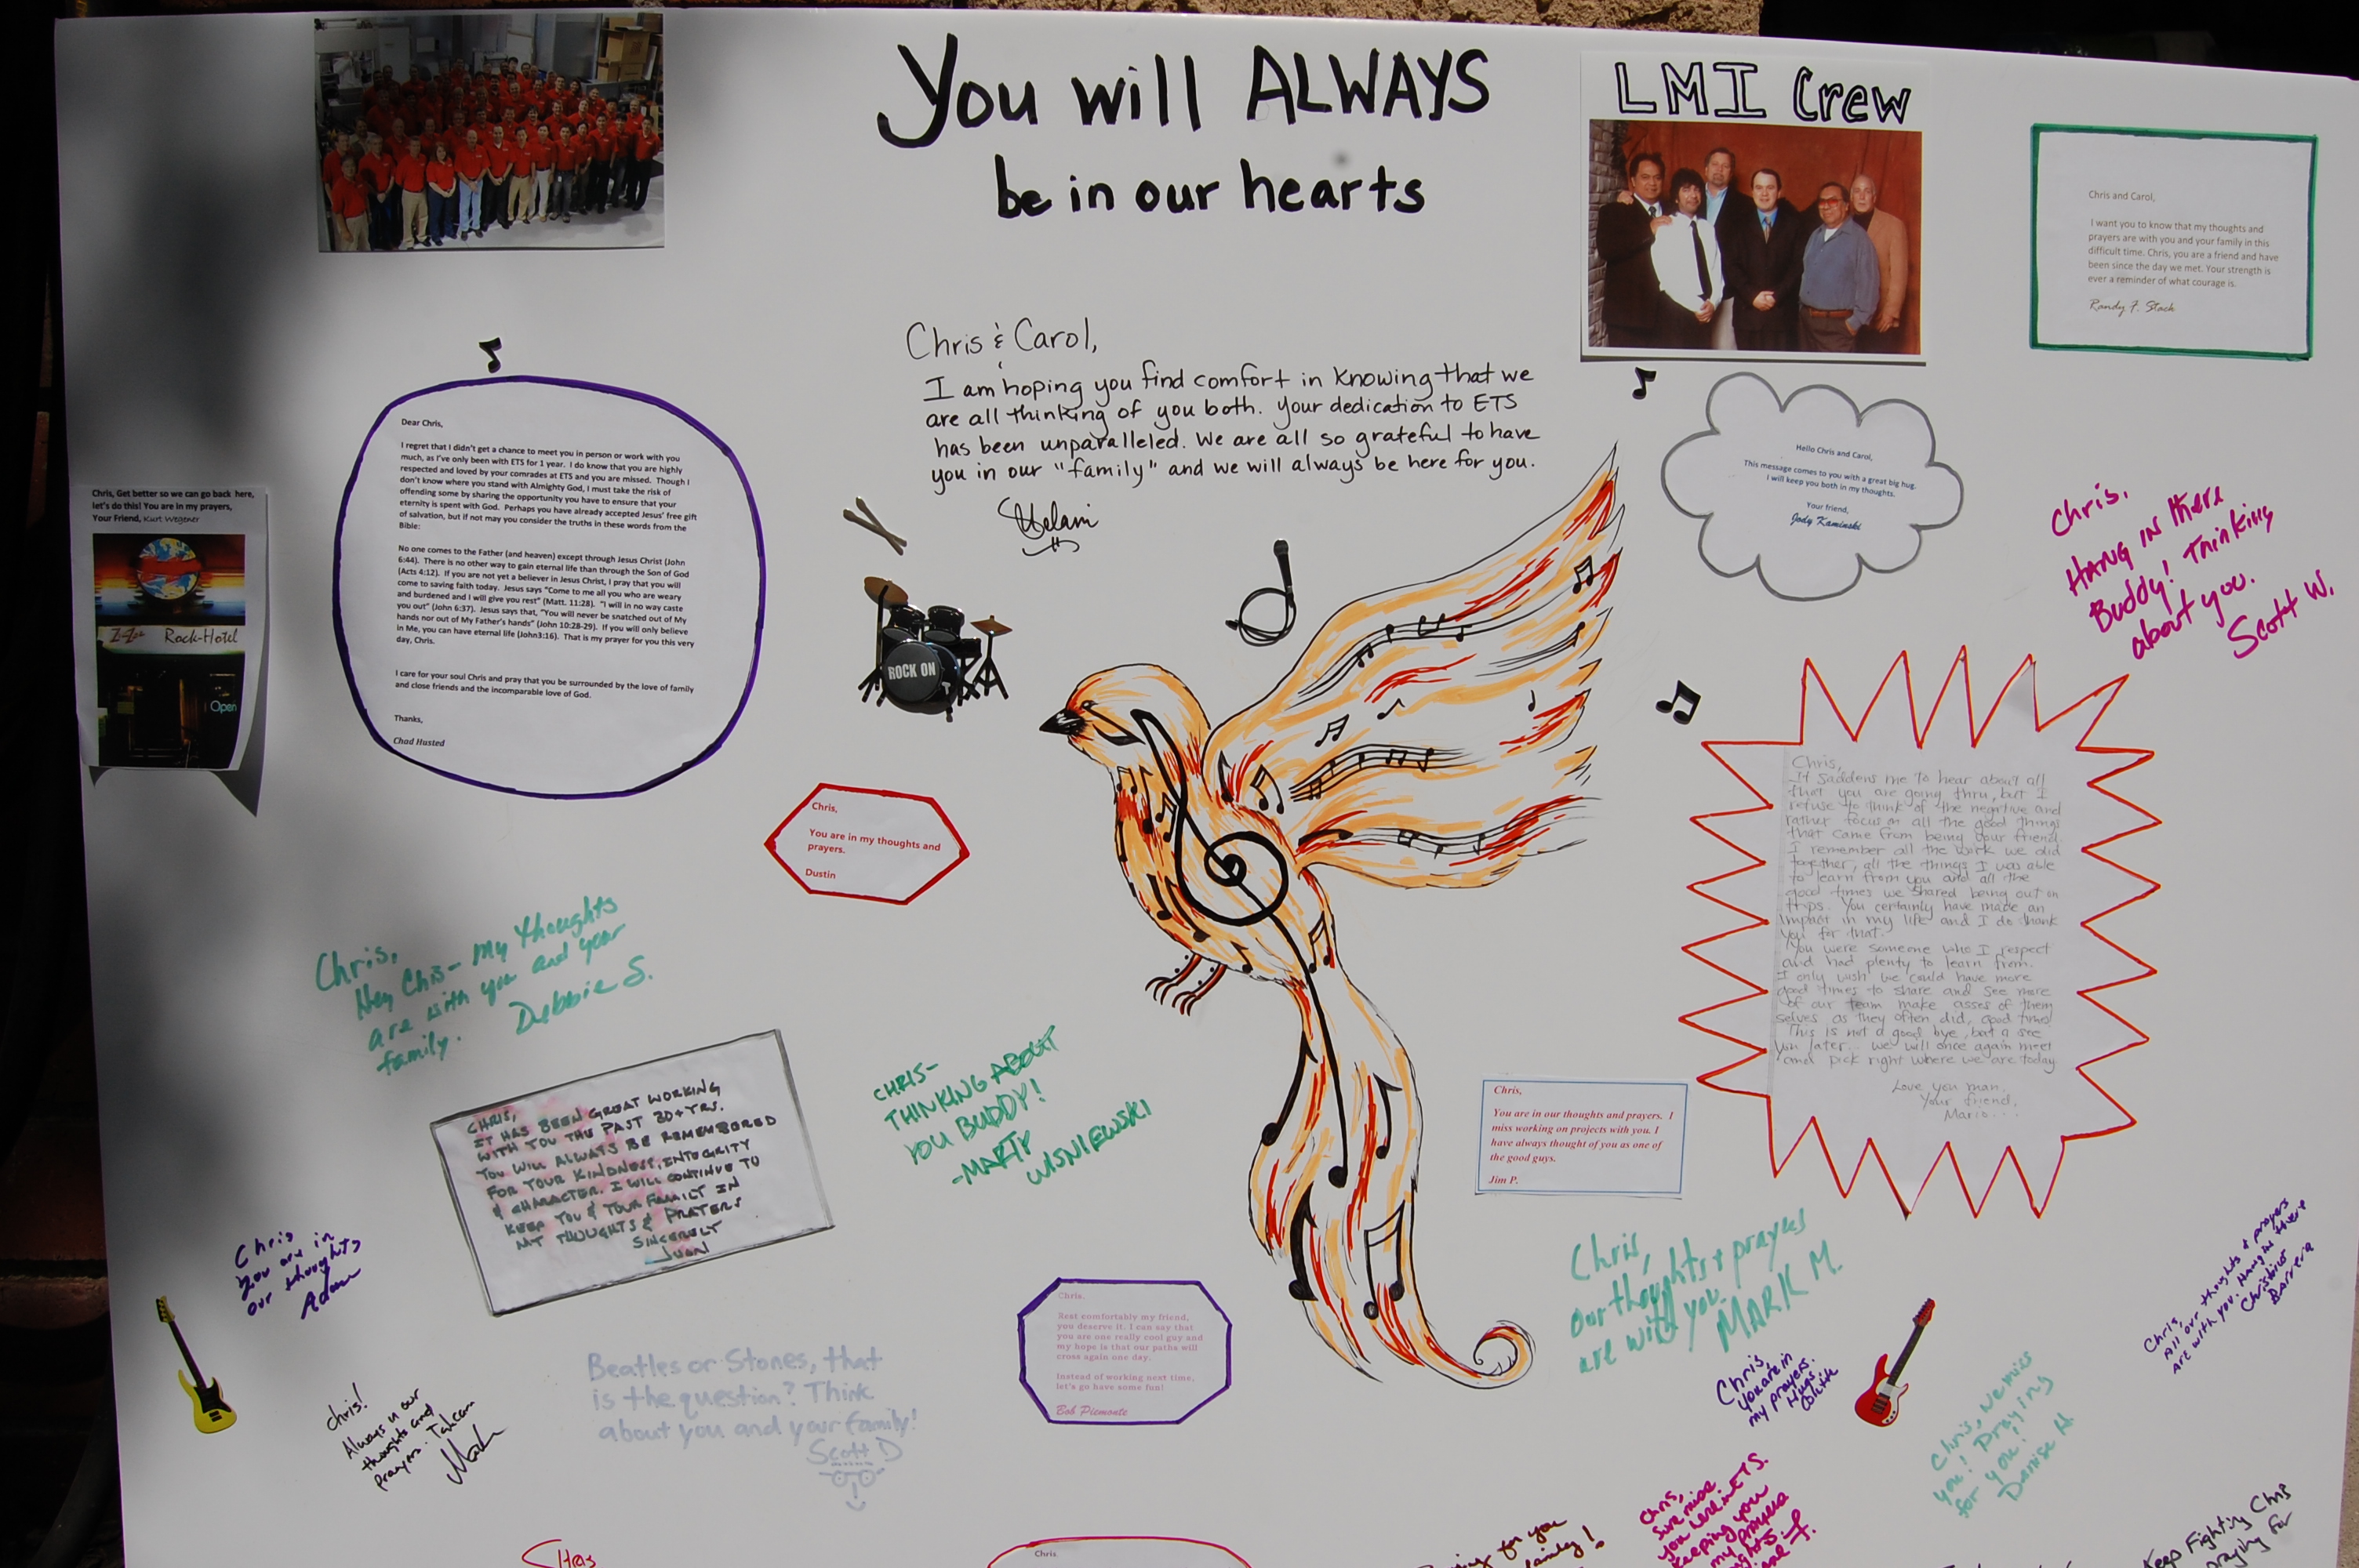 You will ALWAYS
be in our hearts
LMI Crew
Chris and Carol,
I want you to know that my thoughts and
prayers are with you and your family in this
difficult time. Chris, you are a friend and have
been since the day we met. Your strength is
ever a reminder of what courage is.
Randy F. Stack
Chris & Carol,
I am hoping you find comfort in knowing that we
are all thinking of you both. Your dedication to ETS
has been unparalleled. We are all so grateful to have
you in our "family" and we will always be here for you.
Dear Chris,
I regret that I didn't get a chance to meet you in person or work with you
much, as I've only been with ETS for 1 year. I do know that you are highly
respected and loved by your comrades at ETS and you are missed. Though I
don't know where you stand with Almighty God, I must take the risk of
offending some by sharing the opportunity you have to ensure that your
eternity is spent with God. Perhaps you have already accepted Jesus' free gift
of salvation, but if not may you consider the truths in these words from the
Bible:
No one comes to the Father (and heaven) except through Jesus Christ (John
6:44). There is no other way to gain eternal life than through the Son of God
(Acts 4:12). If you are not yet a believer in Jesus Christ, I pray that you will
come to saving faith today. Jesus says "Come to me all you who are weary
and burdened and I will give you rest" (Matt. 11:28). "I will in no way caste
you out" (John 6:37). Jesus says that, "You will never be snatched out of My
hands nor out of My Father's hands" (John 10:28-29). If you will only believe
in Me, you can have eternal life (John3:16). That is my prayer for you this very
day, Chris.
I care for your soul Chris and pray that you be surrounded by the love of family
and close friends and the incomparable love of God.
Thanks,
Chad Husted
Hello Chris and Carol,
This message comes to you with a great big hug.
I will keep you both in my thoughts.
Your friend,
Jody Kaminski
Chris, Get better so we can go back here,
let's do this! You are in my prayers,
Your Friend, Kurt Wegener
Rock-Hotel
Open
Chris.
HANG IN there
Buddy! Thinking
about you.
Scott W.
ROCK ON
Chris,
You are in my thoughts and
prayers.
Dustin
Chris,
It saddens me to hear about all
that you are going thru, but I
refuse to think of the negative and
rather focus on all the good things
that came from being your friend.
I remember all the work we did
together, all the things I was able
to learn from you and all the
good times we shared being out on
trips. You certainly have made an
impact in my life and I do thank
you for that.
You were someone who I respect
and had plenty to learn from.
I only wish we could have more
good times to share and see more
of our team make asses of them
selves as they often did, good times!
This is not a good bye, but a see
you later... we will once again meet
and pick right where we are today
Love you man.
Your friend,
Mario...
Chris,
Hey Chis- My thoughts
are with you and your
family. Debbie S.
CHRIS,
IT HAS BEEN GREAT WORKING
WITH YOU THE PAST 20+ YRS.
YOU WILL ALWAYS BE REMEMBERED
FOR YOUR KINDNESS, INTEGRITY
& CHARACTER. I WILL CONTINUE TO
KEEP YOU & YOUR FAMILY IN
MY THOUGHTS & PRAYERS
SINCERELY
JUAN
CHRIS-
THINKING ABOUT
YOU BUDDY!
-MARTY
WISNIEWSKI
Chris,
You are in our thoughts and prayers. I
miss working on projects with you. I
have always thought of you as one of
the good guys.
Jim P.
Chris
You are in
our thoughts
Adam
Chris,
Our thoughts + prayers
are with you.
MARK M.
Chris,
All our thoughts & prayers
are with you. Hang in there
Christino
Barrera
Chris,
Rest comfortably my friend,
you deserve it. I can say that
you are one really cool guy and
my hope is that our paths will
cross again one day.
Instead of working next time,
let's go have some fun!
Bob Piemonte
Beatles or Stones, that
is the question? Think
about you and your family!
Scott D
Chris!
Always in our
thoughts and
prayers. Take care
Chris,
you are in
my prayers.
Hugs
Chris, we miss
you! Praying
for you!
Denise H
Chris,
Sure miss
you here in ETS.
Keeping you
my prayers
for you
family!
Keep Fighting Chris
praying for
Chris
Chris